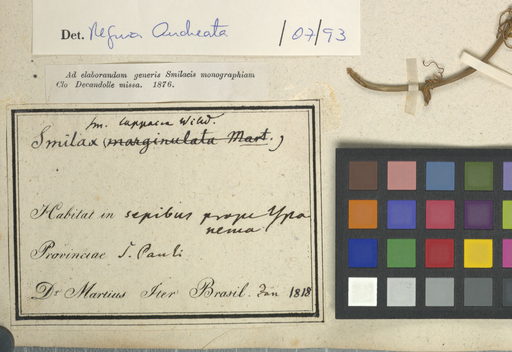 Det. Regina Andreata /07/93
Ad elaborandam generis Smilacis monographiam
Clo Decandolle missa. 1876.
Sm. Willd.
Smilax (marginulata Mart.)
Habitat in sepibus prope Ypa
nema
Provinciae S. Pauli
Dr Martius Iter Brasil. Jan 1818